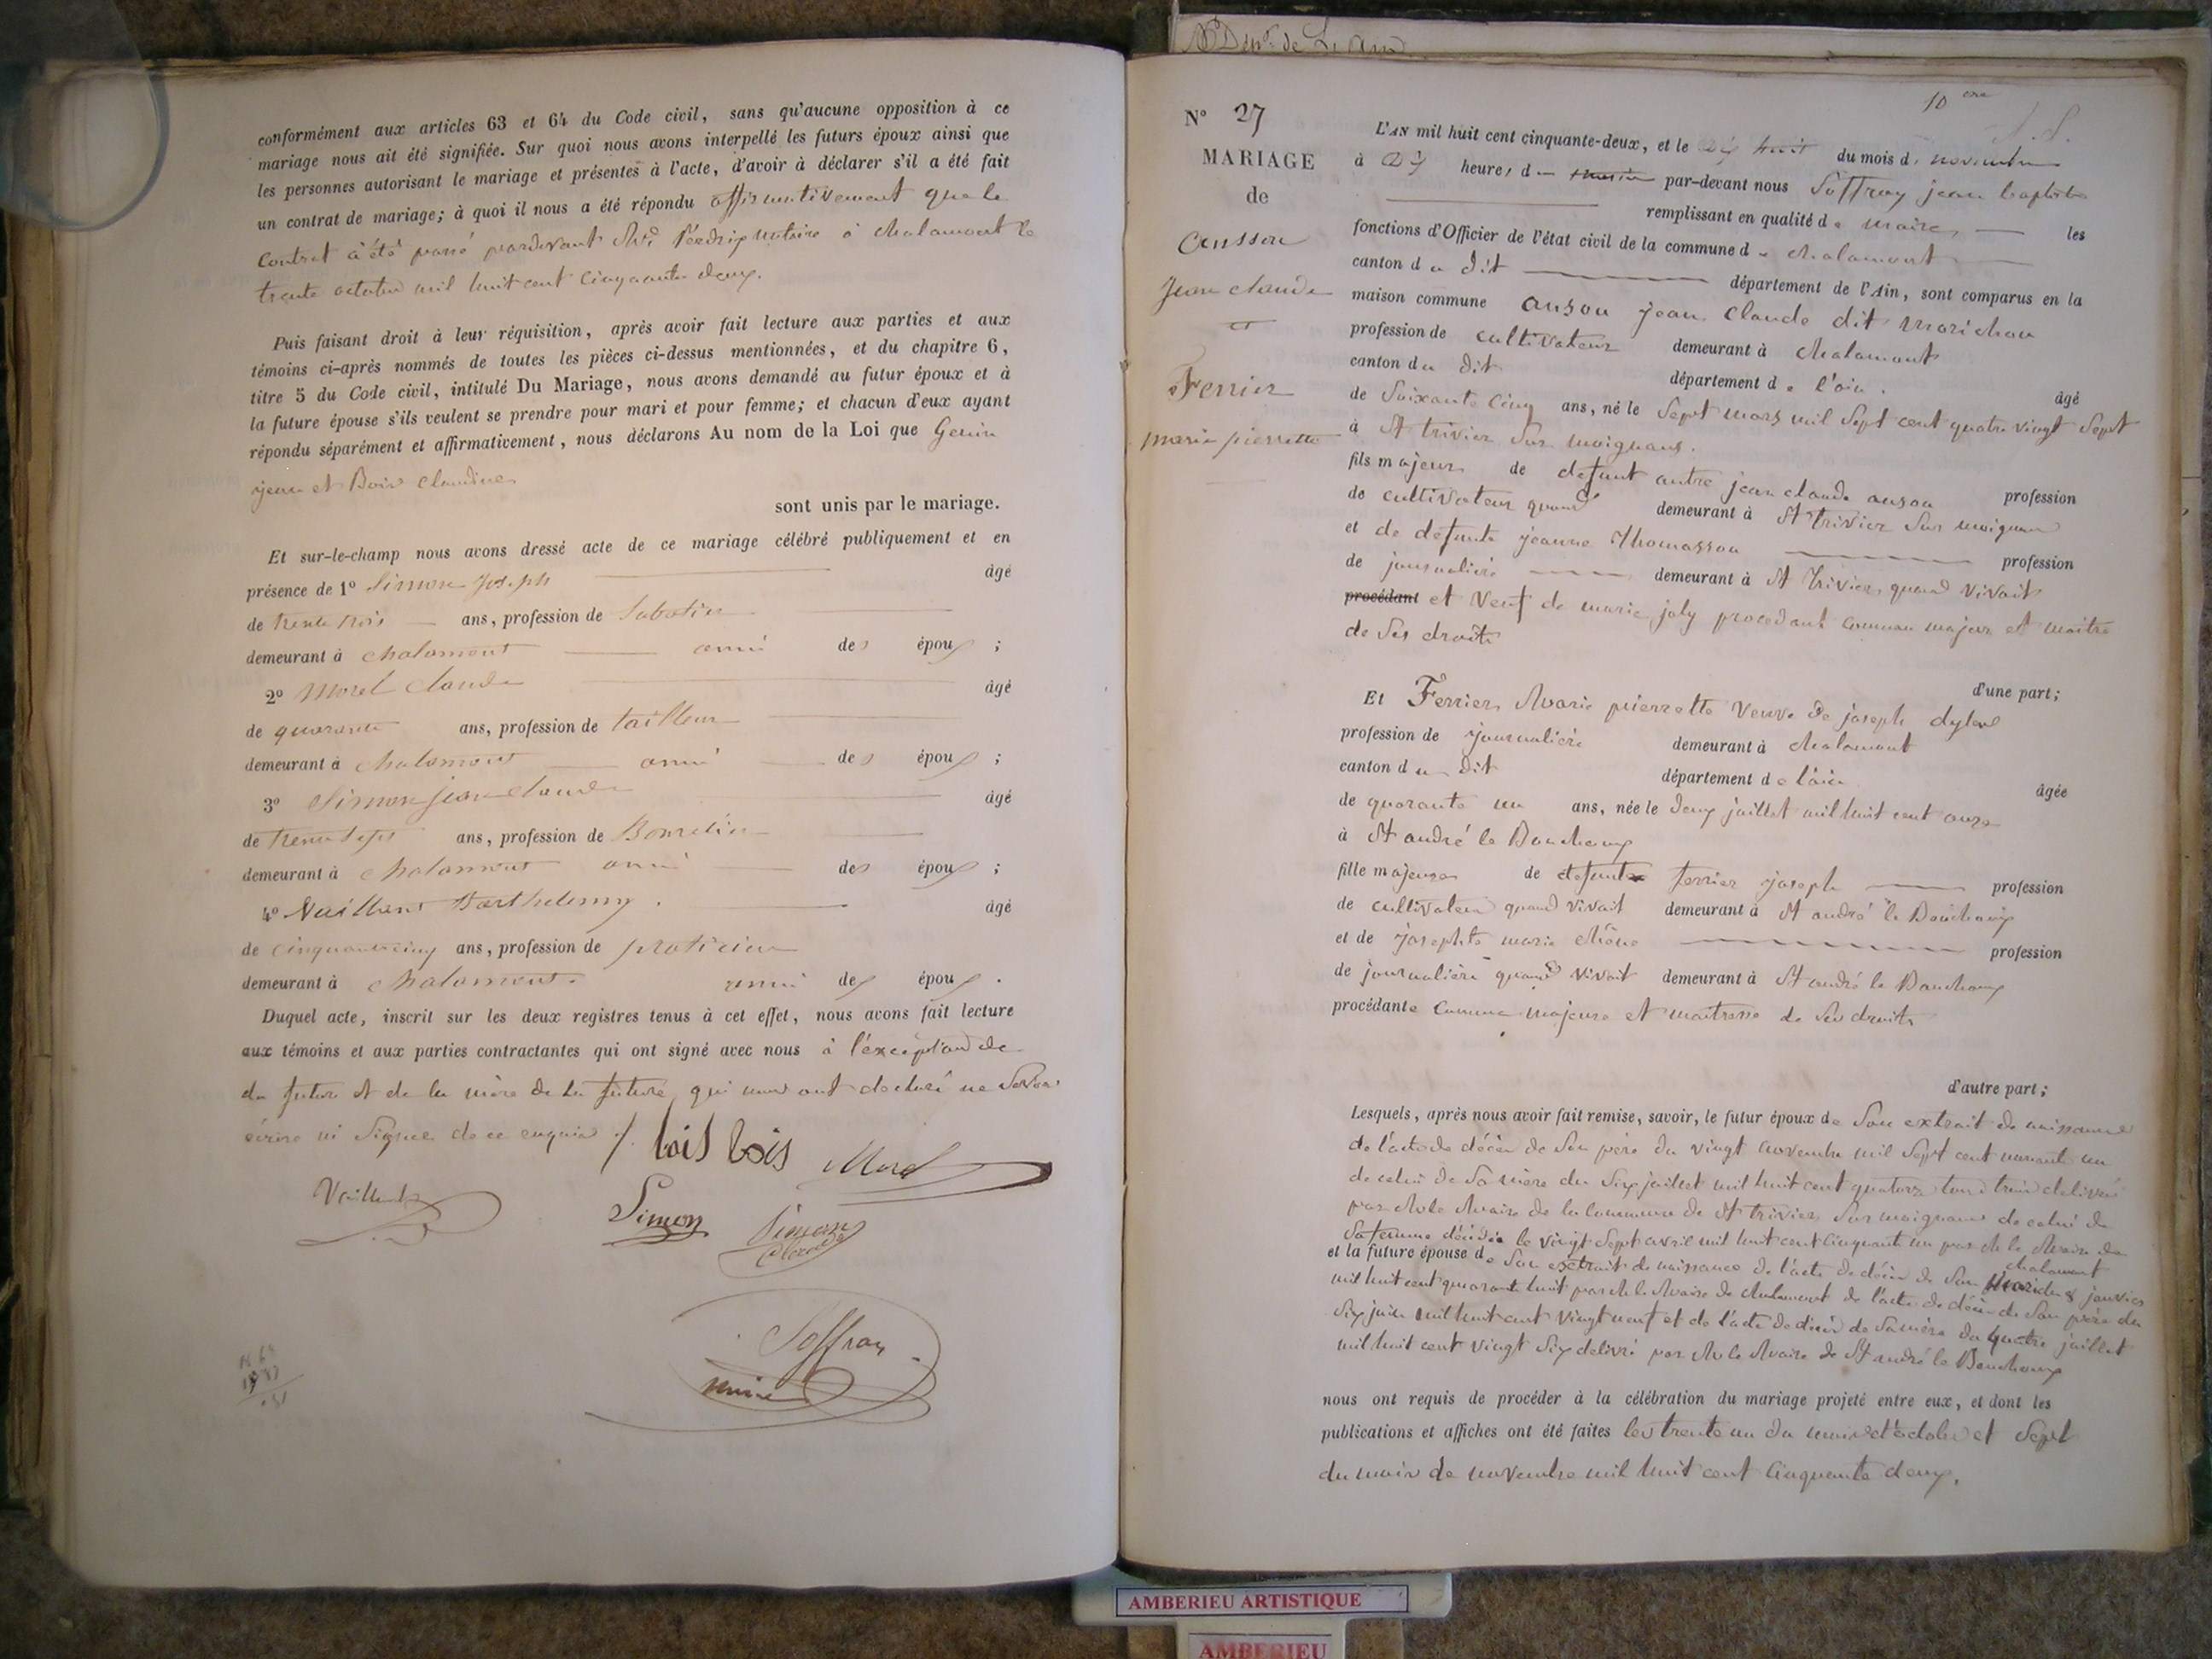 conformément aux articles 63 et 64 du Code civil, sans qu'aucune opposition à ce
mariage nous ait été signifiée. Sur quoi nous avons interpellé les futurs époux ainsi que
les personnes autorisant le mariage et présentes à l'acte, d'avoir à déclarer s'il a été fait
un contrat de mariage; à quoi il nous a été répondu affirmativement que le
contrat à été passé pardevant notaire à chalamont le
trente octobre mil huit cent cinquante deux.
Puis faisant droit à leur réquisition, après avoir fait lecture aux parties et aux
témoins ci-après nommés de toutes les pièces ci-dessus mentionnées, et du chapitre 6,
titre 5 du Code civil, intitulé Du Mariage, nous avons demandé au futur époux et à
la future épouse s'ils veulent se prendre pour mari et pour femme; et chacun d'eux ayant
répondu séparément et affirmativement, nous déclarons Au nom de la Loi que Genin
jean et Bois Claudine
sont unis par le mariage.
Et sur-le-champ nous avons dressé acte de ce mariage célébré publiquement et en
présence de 1º Simon Joseph âgé
de trente trois ans, profession de Sabotier
demeurant à chalamont ami des époux ;
2º Morel Claude âgé
de quarante ans, profession de tailleur
demeurant à chalamont ami des époux ;
3º Simon jean claude âgé
de trente sept ans, profession de Bourelier
demeurant à chalamont ami des époux ;
4º Vaillant Barthelemy . âgé
de cinquante cinq ans, profession de praticien
demeurant à chalamont. ami des époux .
Duquel acte, inscrit sur les deux registres tenus à cet effet, nous avons fait lecture
aux témoins et aux parties contractantes qui ont signé avec nous à l'exception de
du futur et de la mère de la future, qui nous ont declaré ne Savoir
écrire ni Signer de ce enquis ./. bois bois Morel
Vaillant Simon Simon
Claude
Soffray
maire
Dept de L'ain
10
Nº 27
MARIAGE
de
Ansson
Jean claude
et
Ferrier
marie pierrette
L'AN mil huit cent cinquante-deux, et le Dix huit du mois de novembre
à Dix heures du matin par-devant nous Soffray jean baptiste
remplissant en qualité de maire les
fonctions d'Officier de l'état civil de la commune de chalamont
canton du dit département de l'Ain, sont comparus en la
maison commune anson jean claude dit marichon
profession de cultivateur demeurant à chalamont
canton du dit département de l'ain . âgé
de Soixante cinq ans, né le Sept mars mil Sept cent quatre vingt Sept
à St trivier Sur moignans.
fils majeur de defunt autre jean claude anson profession
de cultivateur quand demeurant à St trivier Sur moignans
et de defunte jeanne Thomasson profession
de journalière demeurant à St Trivier quand vivait
procédant et Veuf de marie joly procedant comme majeur et maitre
de Ses droits
d'une part;
Et Ferrier Marie pierrette Veuve de joseph
profession de journalière demeurant à chalamont
canton du dit département de l'ain âgée
de quarante un ans, née le deux juillet mil huit cent onze
à St andré le Bouchoux
fille majeure de defunt ferrier joseph profession
de cultivateur quand vivait demeurant à St andré le Bouchoux
et de josephte marie chêne profession
de journalière quand vivait demeurant à St andré le Bouchoux
procédante comme majeure et maitresse de Ses droits
d'autre part;
Lesquels, après nous avoir fait remise, savoir, le futur époux de Son extrait de naissance
de l'acte de décès de Son père du vingt novembre mil Sept cent nonante un
de celui de Sa mère du Six juillet mil huit cent quatorze tous trois delivrés
par Mr le Maire de la commune de St trivier Sur moignans de celui de
Sa femme décédée le vingt Sept avril mil huit cent cinquante un par Mr le Maire de
chalamont
et la future épouse de Son extrait de naissance de l'acte de décès de Son Mari du 8 janvier
mil huit cent quarante huit par Mr le Maire de chalamont de l'acte de décès de Son père du
Six juin mil huit cent vingt neuf et de l'acte de décès de Sa mère du quatre juillet
mil huit cent vingt Six delivré par Mr le Maire de St andré le Bouchoux
nous ont requis de procéder à la célébration du mariage projeté entre eux, et dont les
publications et affiches ont été faites les trente un du mois d'octobre et Sept
du mois de novembre mil huit cent cinquante deux.
AMBERIEU ARTISTIQUE
AMBERIEU